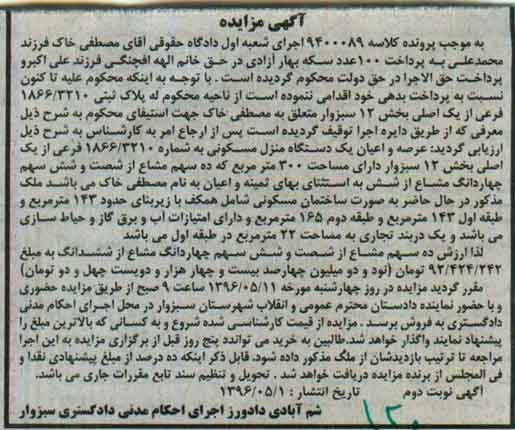 آگهی مزایده
به موجب پرونده کلاسه ۹۴۰۰۰۸۹ اجرای شعبه اول دادگاه حقوقی آقای مصطفی خاک فرزند
محمدعلی به پرداخت ۱۰۰عدد سکه بهار آزادی در حق خانم الهه افچنگی فرزند علی اکبرو
پرداخت حق الاجرا در حق دولت محکوم گردیده است . با توجه به اینکه محکوم علیه تا کنون
نسبت به پرداخت بدهی خود اقدامی ننموده است از ناحیه محکوم له پلاک ثبتی ۱۸۶۶/۳۲۱۰
فرعی از یک اصلی بخش ۱۲ سبزوار متعلق به مصطفی خاک جهت استیفای محکوم به شرح ذیل
معرفی که از طریق دایره اجرا توقیف گردیده است پس از ارجاع امر به کارشناس به شرح ذیل
ارزیابی گردید: عرصه و اعیان یک دستگاه منزل مسکونی به شماره ۱۸۶۶/۳۲۱۰ فرعی از یک
اصلی بخش ۱۲ سبزوار دارای مساحت ۳۰۰ متر مربع که ده سهم مشاع از شصت و شش سهم
چهاردانگ مشاع از شش به استثنای بهای ثمینه و اعیان به نام مصطفی خاک می باشد ملک
مذکور در حال حاضر به صورت ساختمان مسکونی شامل همکف با زیربنای حدود ۱۴۳ مترمربع و
طبقه اول ۱۴۳ مترمربع و طبقه دوم ۱۶۵ مترمربع و دارای امتیازات آب و برق گاز و حیاط سازی
می باشد و یک دربند تجاری به مساحت ۲۲ مترمربع در طبقه اول می باشد
لذا ارزش ده سهم مشاع از شصت و شش سهم چهاردانگ مشاع از ششدانگ به مبلغ
۹۲/۴۲۴/۲۴۲ تومان (نود و دو میلیون چهارصد بیست و چهار هزار و دویست چهل و دو تومان)
مقرر گردید مزایده در روز چهارشنبه مورخه ۱۳۹۶/۰۵/۱۱ ساعت ۹ صبح از طریق مزایده حضوری
و با حضور نماینده دادستان محترم عمومی و انقلاب شهرستان سبزوار در محل اجرای احکام مدنی
دادگستری به فروش برسد . مزایده از قیمت کارشناسی شده شروع و به کسانی که بالاترین مبلغ را
پیشنهاد نمایند واگذار خواهد شد.طالبین به خرید می توانند پنج روز قبل از برگزاری مزایده به این اجرا
مراجعه تا ترتیب بازدیدشان از ملک مذکور داده شود. قابل ذکر اینکه ده درصد از مبلغ پیشنهادی نقدا و
فی المجلس از برنده مزایده دریافت خواهد شد . تحویل و تنظیم سند تابع مقررات جاری می باشد.
آگهی نوبت دوم تاریخ انتشار : ۱۳۹۶/۰۵/۱
شم آبادی دادورز اجرای احکام مدنی دادگستری سبزوار
۱۲۰